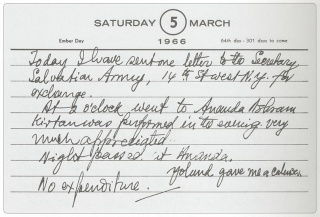 SATURDAY 5 MARCH
Ember Day 1966 64th day - 301 days to come
Today I have sent one letter to the Secretary
Salvation Army, 14th St west N.Y. for
exchange.
At o'clock went to Ananda Ashram
Kirtan was performed in to evening very
much appreciated.
Night passed at Ananda.
gave me a
No expenditure.